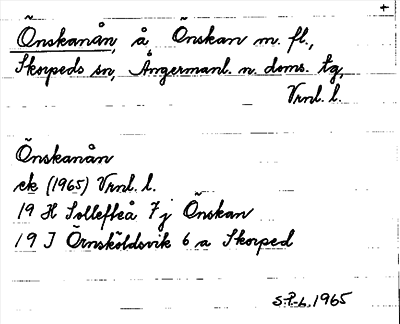 +
Önskanån, å Önskan m. fl.,
Skorpeds sn, Ångermanl. n. doms. tg,
Vrnl. l.
Önskanån
ek (1965) Vrnl. l.
19 H Sollefteå 7j Önskan
19 J Örnsköldsvik 6 a Skorped
S.P-6.1965